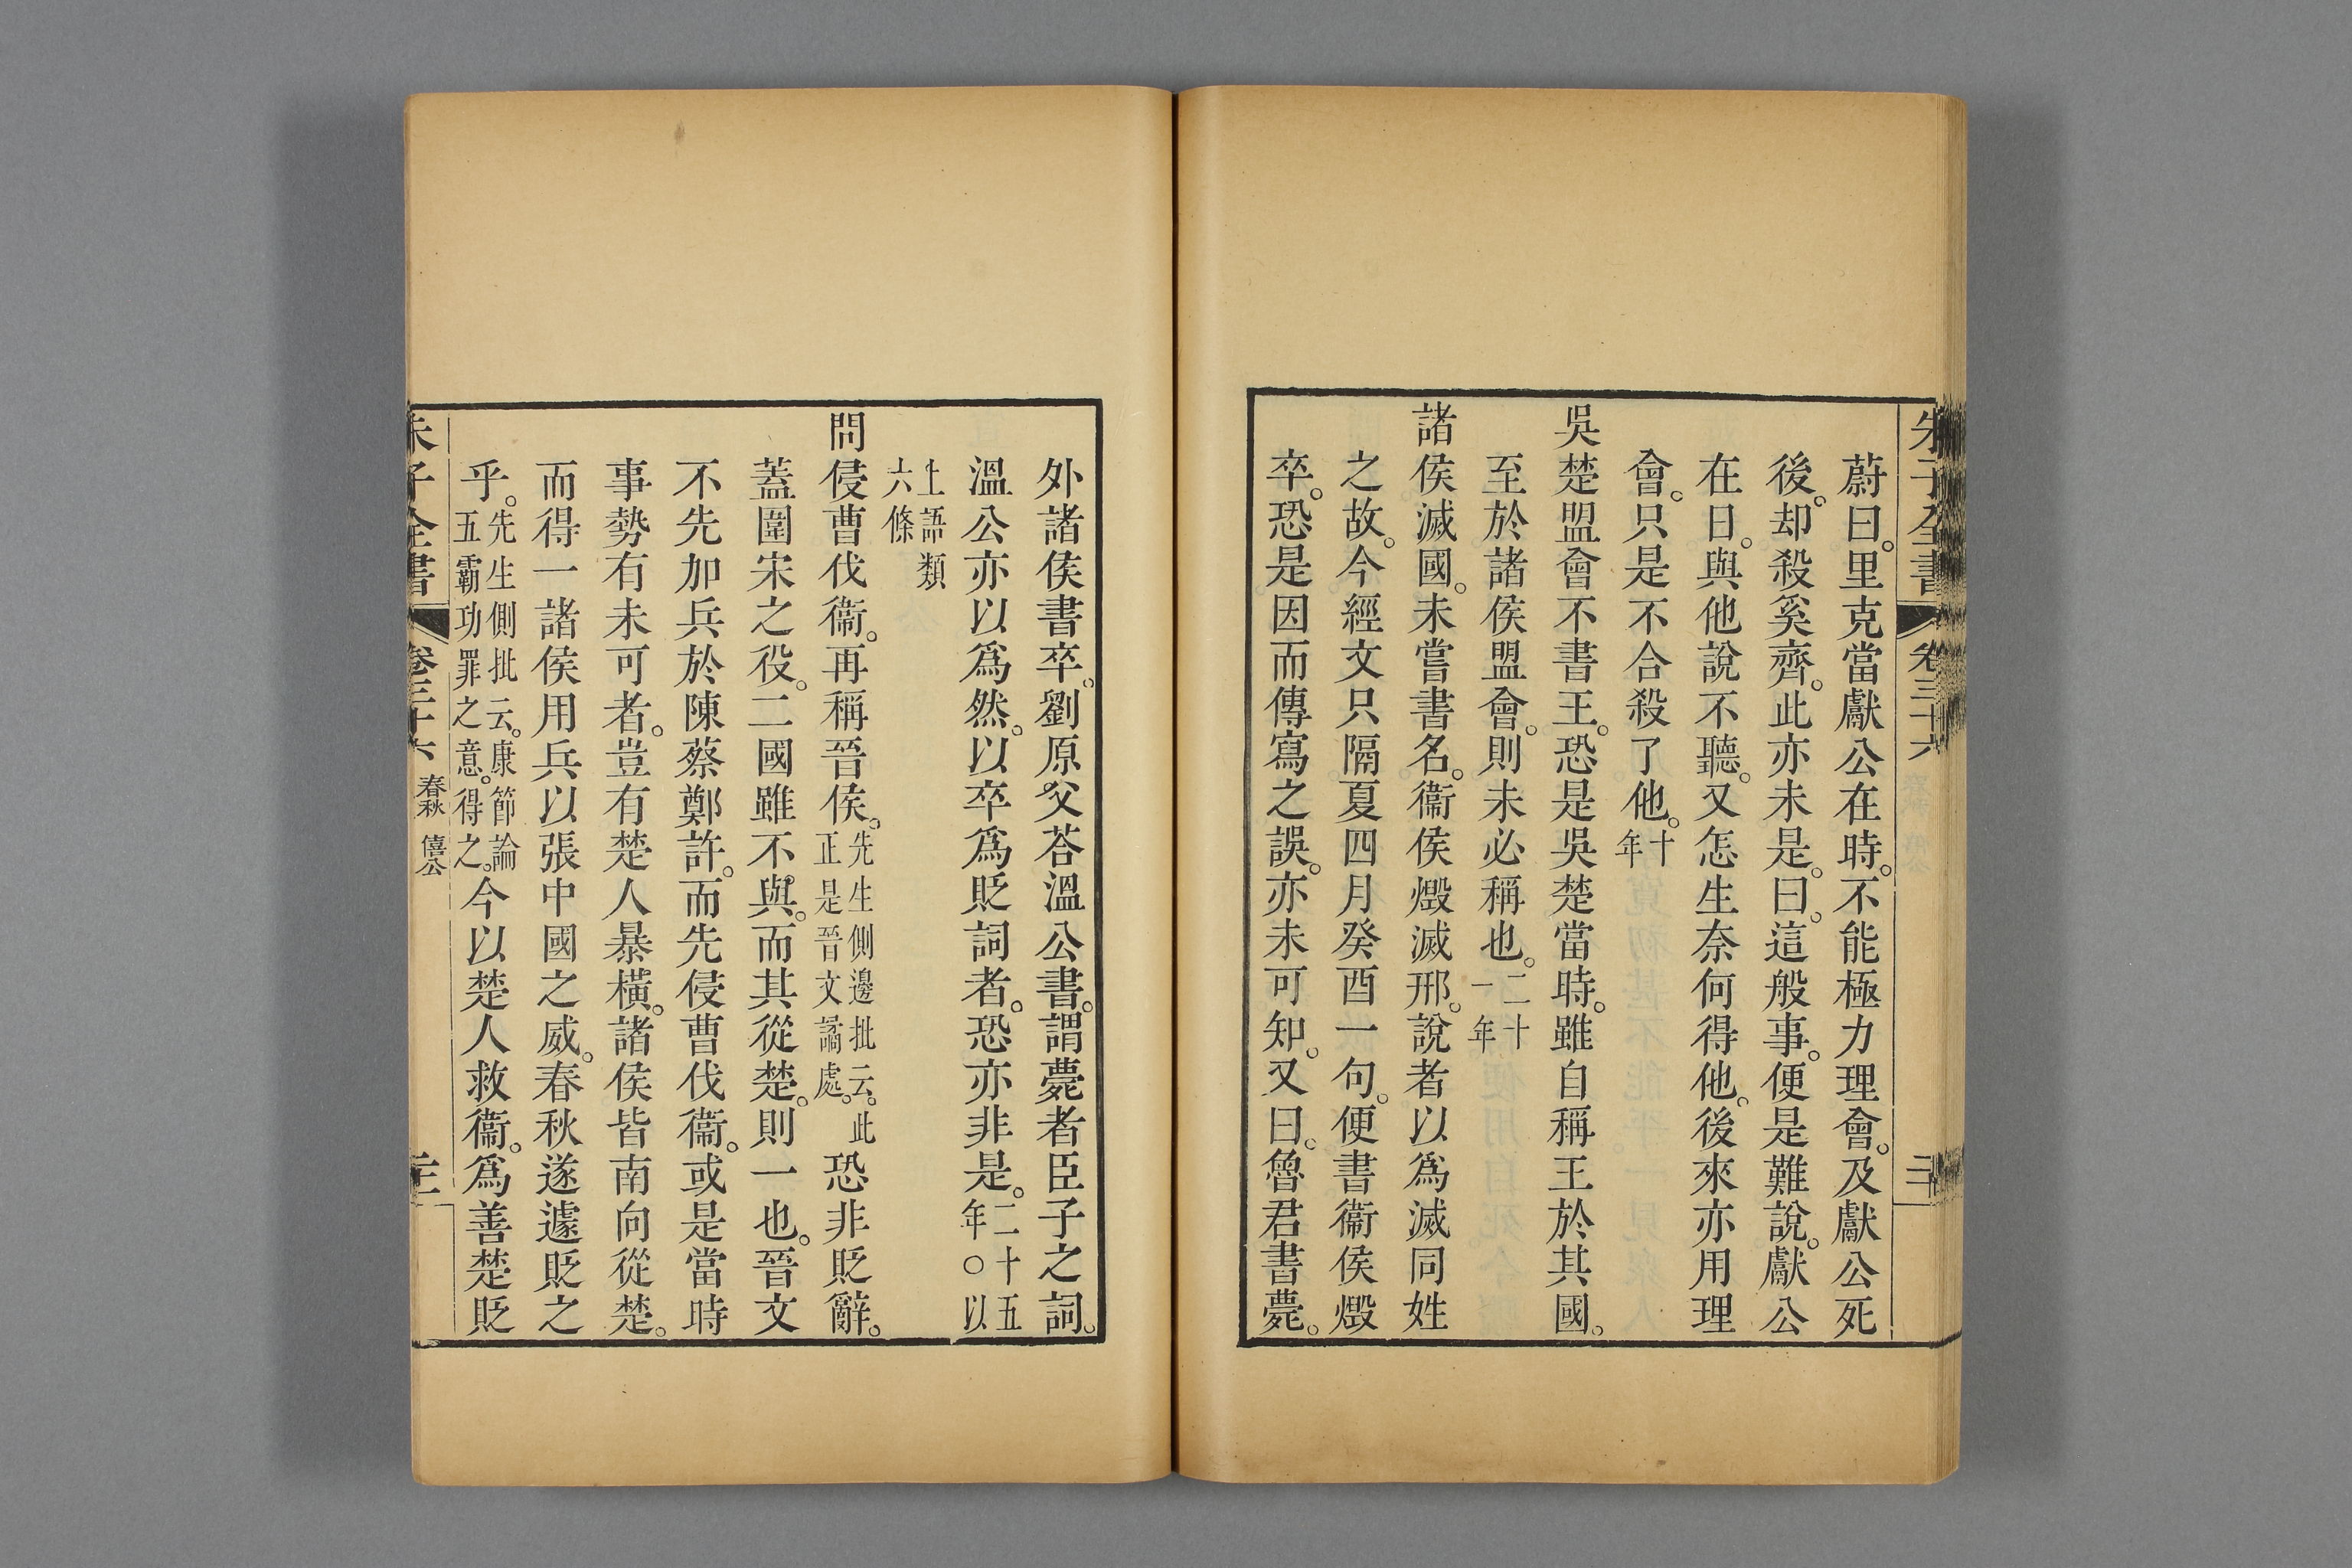 蔚曰。里克當獻公在時。不能極力理會。及獻公死
後。却殺奚齊。此亦未是。曰。這般事。便是難說。獻公
在日。與他說不聽。又怎生奈何得他。後來亦用理
會。只是不合殺了他。十年
吳楚盟會不書王。恐是吳楚當時。雖自稱王於其國。
至於諸侯盟會。則未必稱也。二十一年
諸侯滅國。未嘗書名。衞侯燬滅邢。說者以爲滅同姓
之故。今經文只隔夏四月癸酉一句。便書衞侯燬
卒。恐是因而傳寫之誤。亦未可知。又曰。魯君書薨。
外諸侯書卒。劉原父荅溫公書。謂薨者臣子之詞。
溫公亦以爲然。以卒爲貶詞者。恐亦非是。二十五年○以
上語類六條
問侵曹伐衞。再稱晉侯。先生側邊批云。此正是晉文譎處。恐非貶辭。
蓋圍宋之役。二國雖不與。而其從楚。則一也。晉文
不先加兵於陳蔡鄭許。而先侵曹伐衞。或是當時
事勢有未可者。豈有楚人暴橫。諸侯皆南向從楚。
而得一諸侯用兵以張中國之威。春秋遂遽貶之
乎。先生側批云。康節論五霸功罪之意。得之。今以楚人救衞。爲善楚貶
朱子全書 卷三十六 春秋 僖公